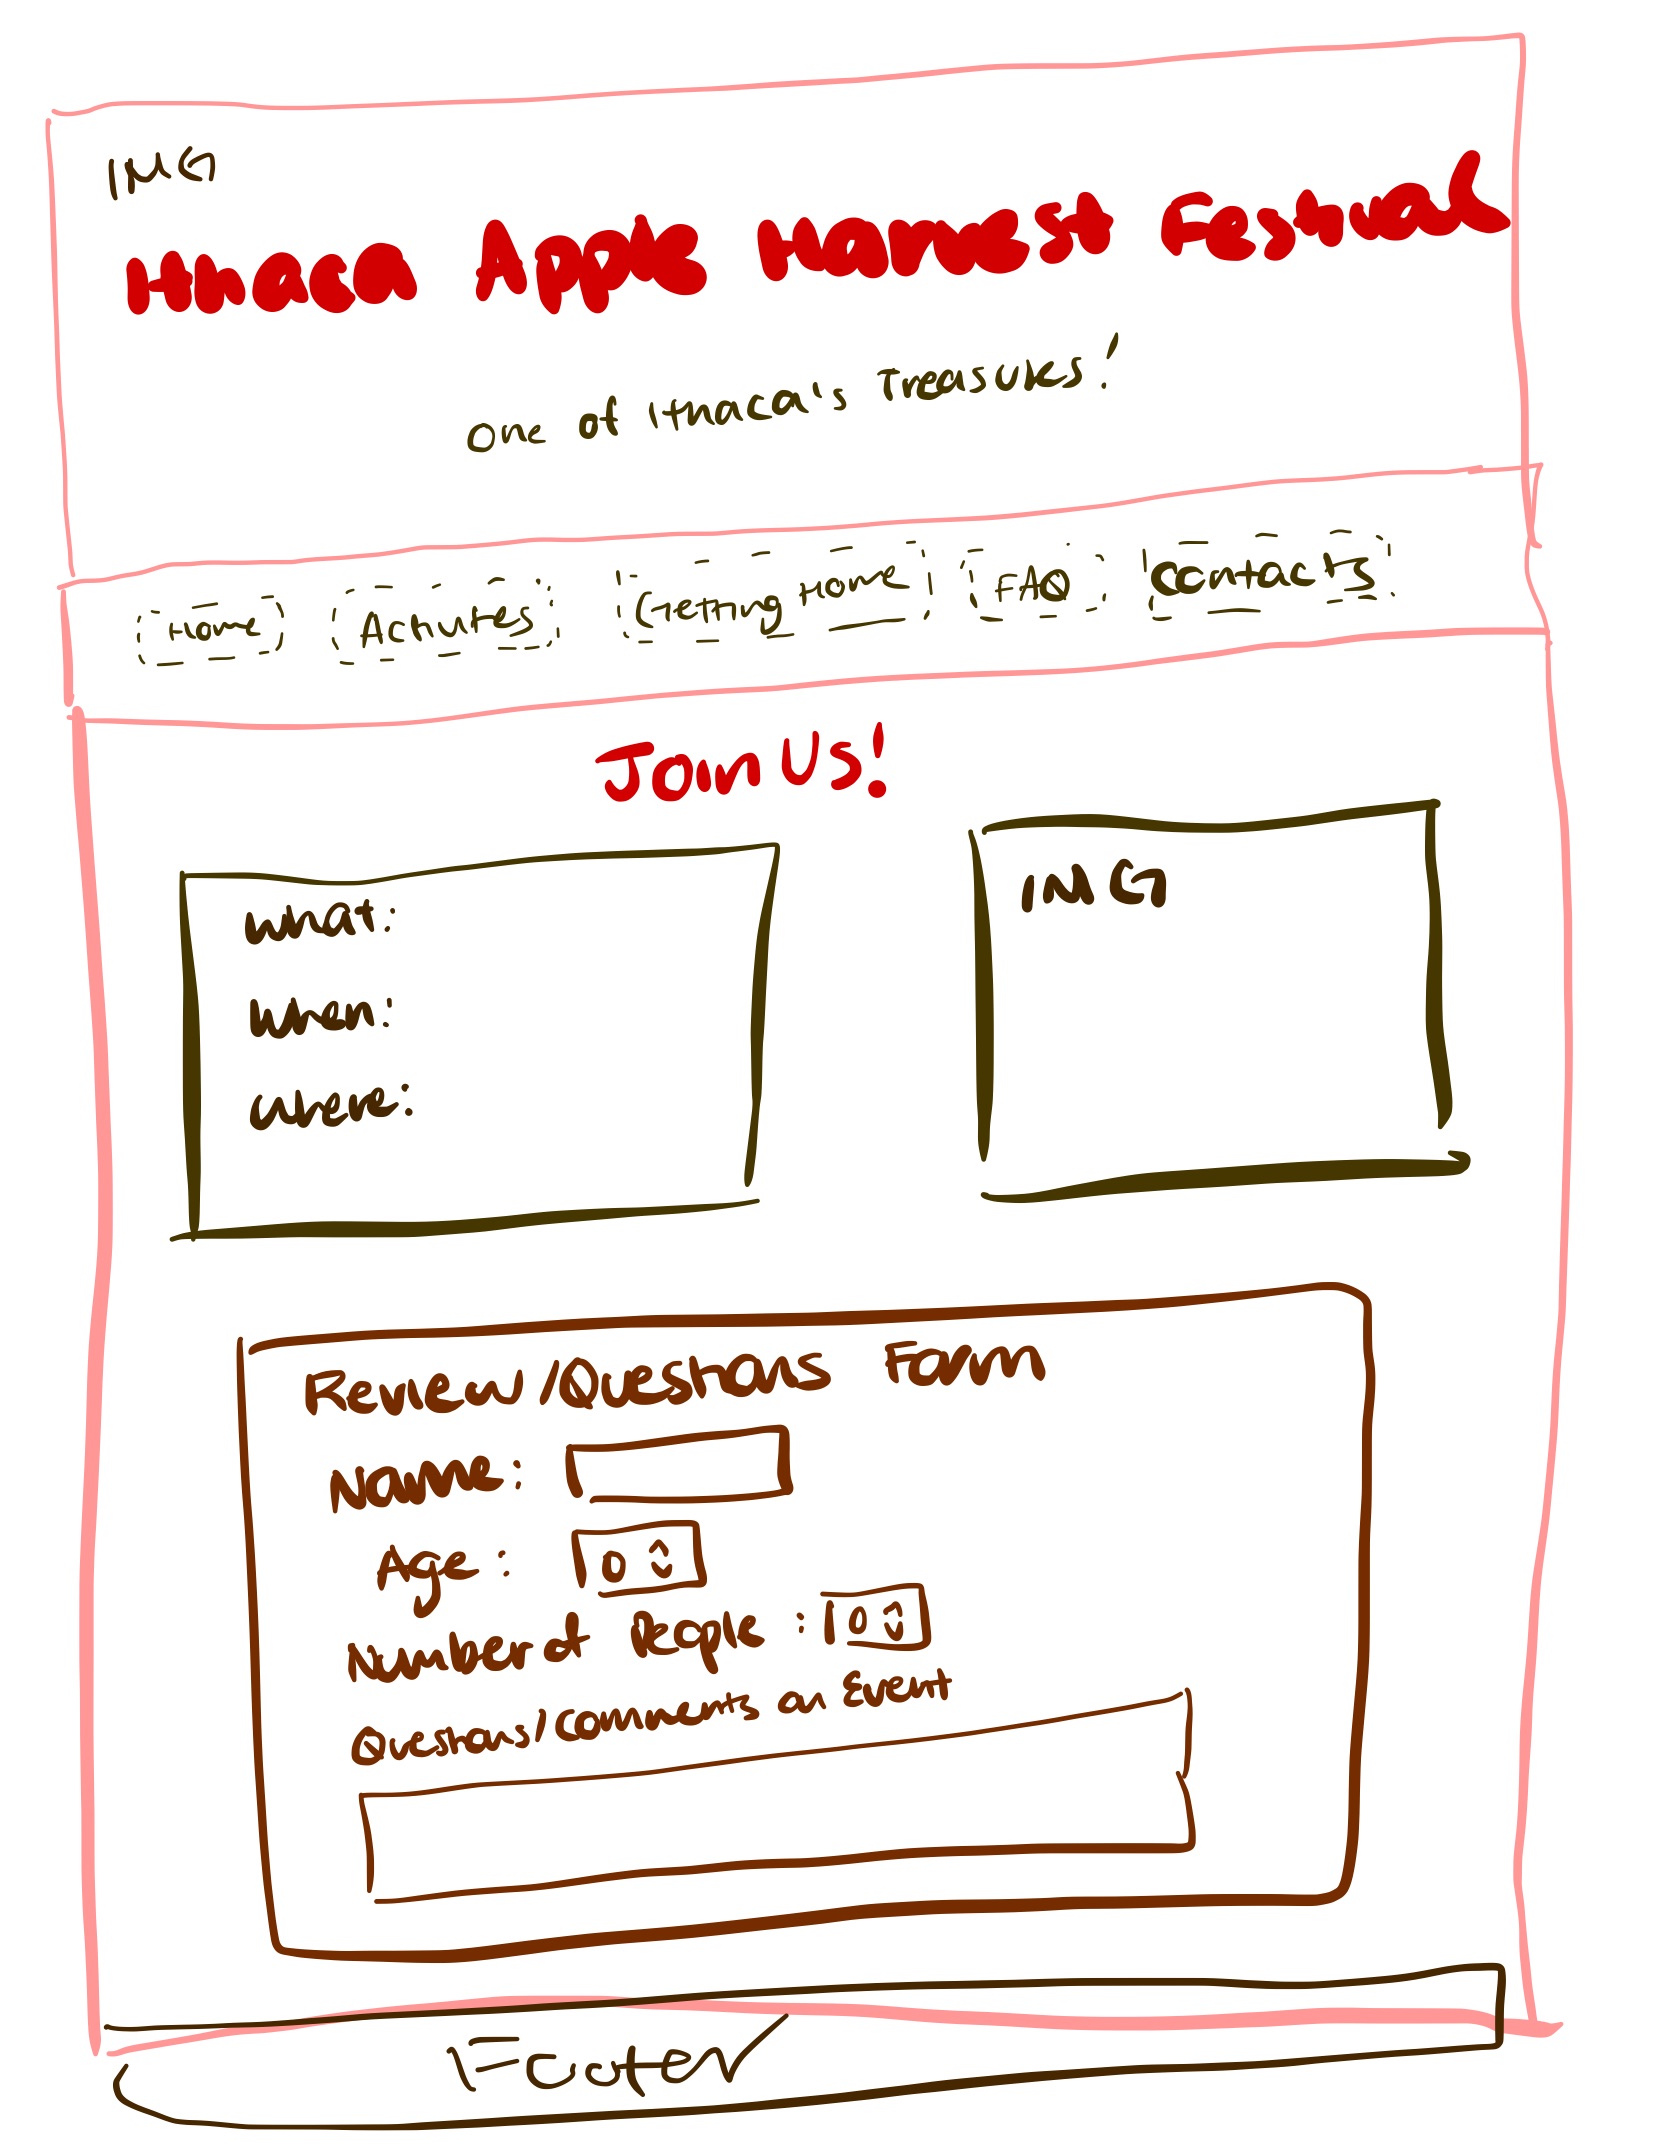 IMG
Ithaca Apple Harvest Festival
One of Ithaca's Treasures!
Home Activites Getting Home FAQ Contacts
Join Us!
What:
When:
Where:
IMG
Review/Questions Form
Name:
Age: 0
Number of People: 0
Questions/Comments on Event
Footer